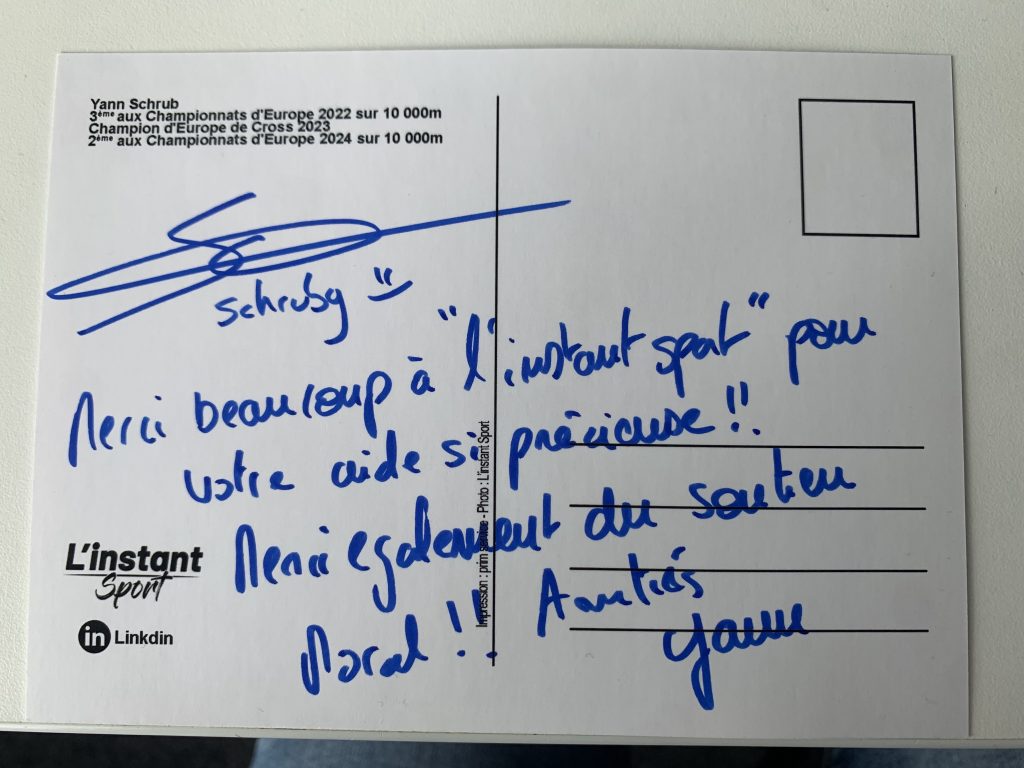 Yann Schrub
3ème aux Championnats d'Europe 2022 sur 10 000m
Champion d'Europe de Cross 2023
2ème aux Championnats d'Europe 2024 sur 10 000m
schruby
Merci beaucoup à "l'instant sport" pour
votre aide si précieuse !!
Merci également du soutien
Moral !! Amitiés
Yann
L'instant
Sport
in Linkdin
Impression : prim service - Photo : L'instant Sport